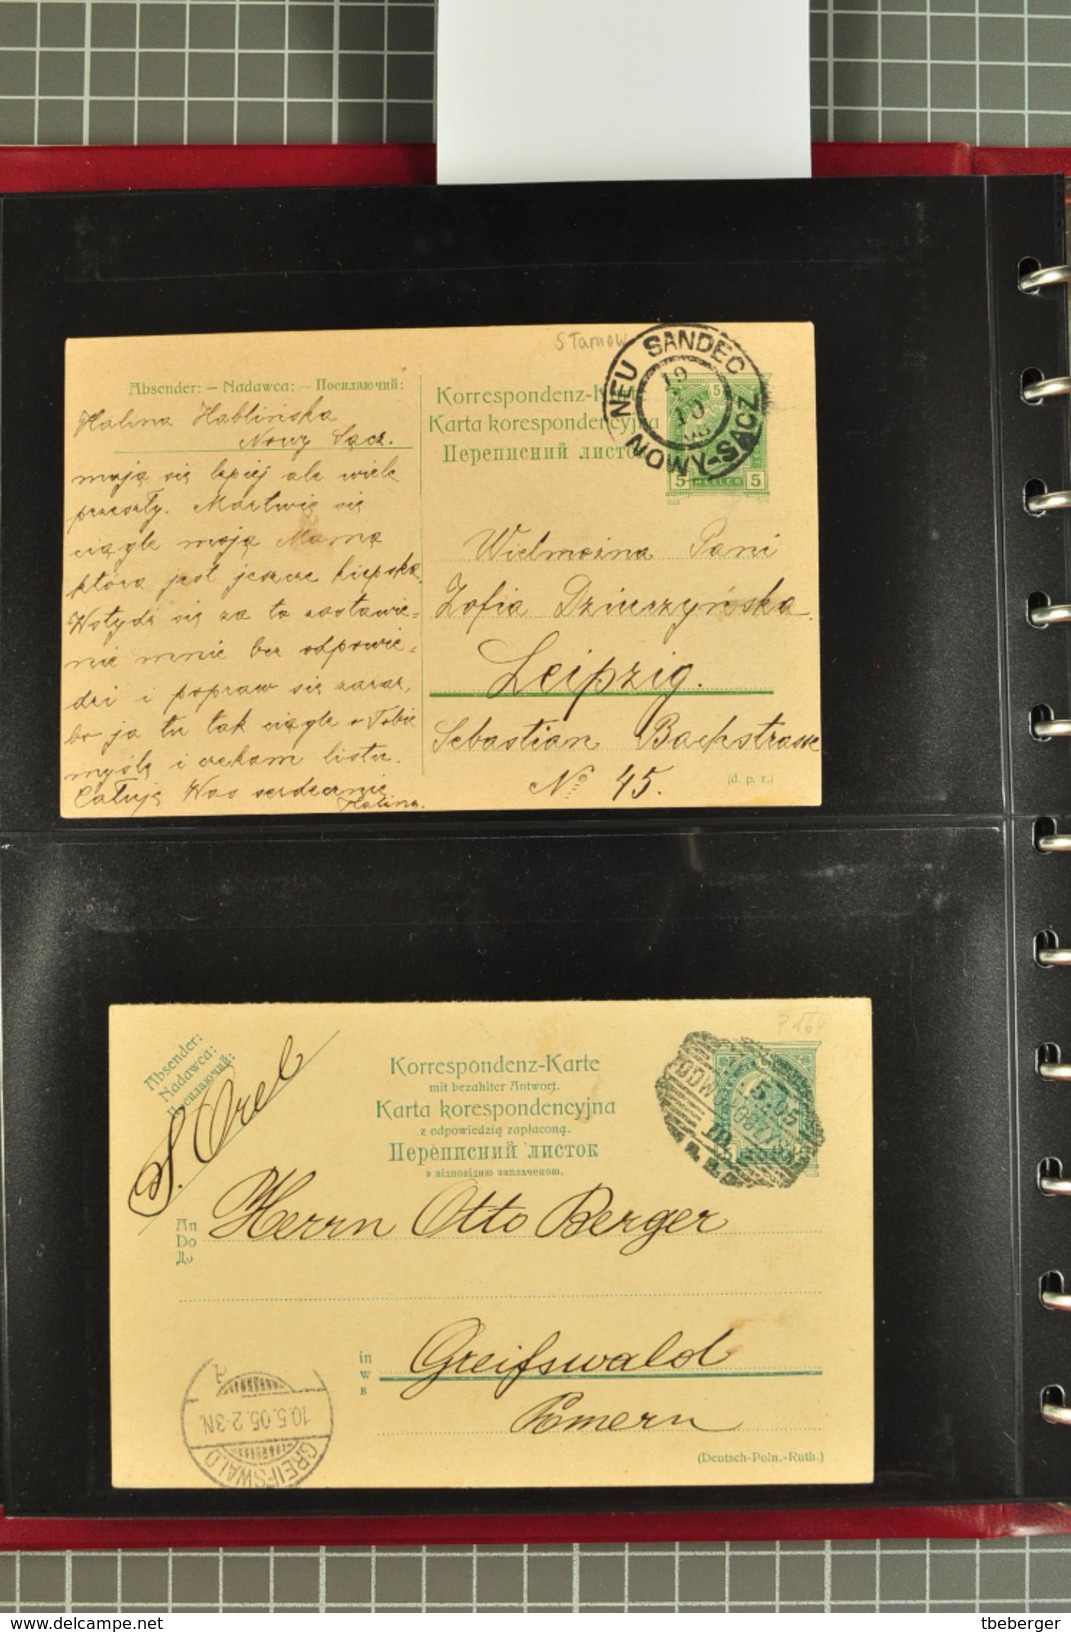 S Tarnow
NEU SANDEC
NOWY-SĄCZ
19
10
Absender: — Nadawca: — Посилаючий:
Halina Hablińska
Nowy Sącz.
mają się lepiej ale wiele
przeszły. Martwię się
ciągle moją Mamą
która jest jeszcze kiepska.
Wstydź się za to zostawie-
nie mnie bez odpowie-
dzi i popraw się zaraz,
bo ja tu tak ciągle o Tobie
myślę i czekam listu.
Całuję Was serdecznie
Halina.
Korrespondenz-Karte
Karta korespondencyjna
Переписний листок
5 HELLER 5
Wielmożna Pani
Zofia Dziurzyńska
Leipzig.
Sebastian Bachstrasse
No 45.
(d. p. r.)
P 164
Absender:
Nadawca:
Посилаючий:
S. Orel
Korrespondenz-Karte
mit bezahlter Antwort.
Karta korespondencyjna
z odpowiedzią zapłaconą.
Переписний листок
з відповідию заплаченою.
5.05
An
Do
До
Herrn Otto Berger
in
w
в
Greifswald
Pomern
GREIFSWALD
10.5.05.2-3N.
(Deutsch-Poln.-Ruth.)
delcampe.net
tbeberger